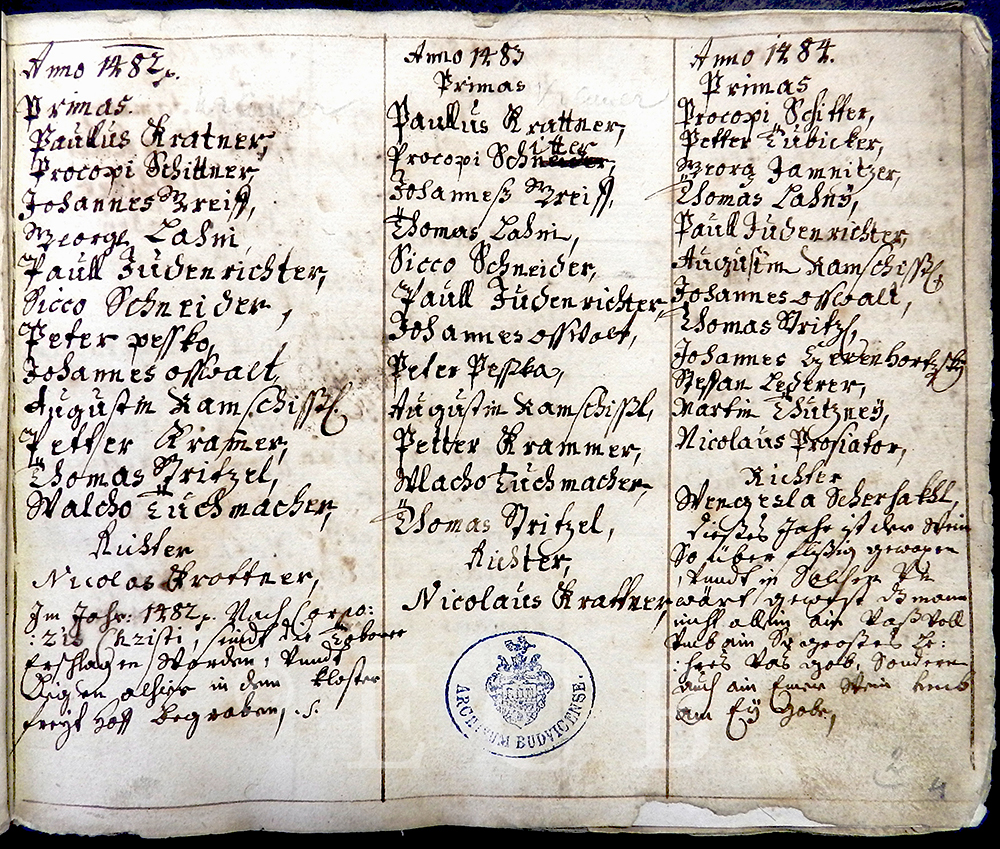 Anno 1482.
Primas.
Paulus Kratner,
Procopi Schittner,
Johannes Greiss,
George Lahni
Paull Judenrichter,
Sicco Schneider,
Peter Pessko,
Johannes Osswalt,
Augustin Ramschissl
Petter Kramer,
Thomas Stritzel,
Walcho Tuchmacher,
Richter
Nicolas Krattner,
Im Jahr: 1482. Nach Corpo:
:ris Christi, sindt die Taborer
Erschlagen Worden, Vundt
Ligen alhier in dem Kloster
freyt Hoff begraben,
Anno 1483
Primas
Paullus Krattner,
Procopi Schnitter,
Johanness Greiss,
Thomas Lahni,
Sicco Schneider,
Paull Judenrichter,
Johannes Osswalt,
Peter Peszka,
Augustin Ramschissl,
Petter Krammer,
Wlacho Tuchmacher,
Thomas Stritzel,
Richter,
Nicolaus Krattner,
ARCHIVUM BUDVICENSE.
Anno 1484.
Primas
Procopi Schitter,
Petter Lubicker,
Georg Jamnitzer,
Thomas Lahny,
Paull Judenrichter,
Augustin Ramschissl,
Johannes Osswalt,
Thomas Stritzl,
Johannes
Steffan Lederer,
Martin
Nicolaus Prosiator,
Richter
Wenczesla
Dieses Jahr ist der Wein
So über flissig gewaxen
Vundt in Solcher
wärt gewest das mann
nicht allein ain Vass Voll
Vmb ain So grosses Le:
:hres Vas gab, Sondern
auch ain Emer Wein Vmb
ain Ey Gabe,
2